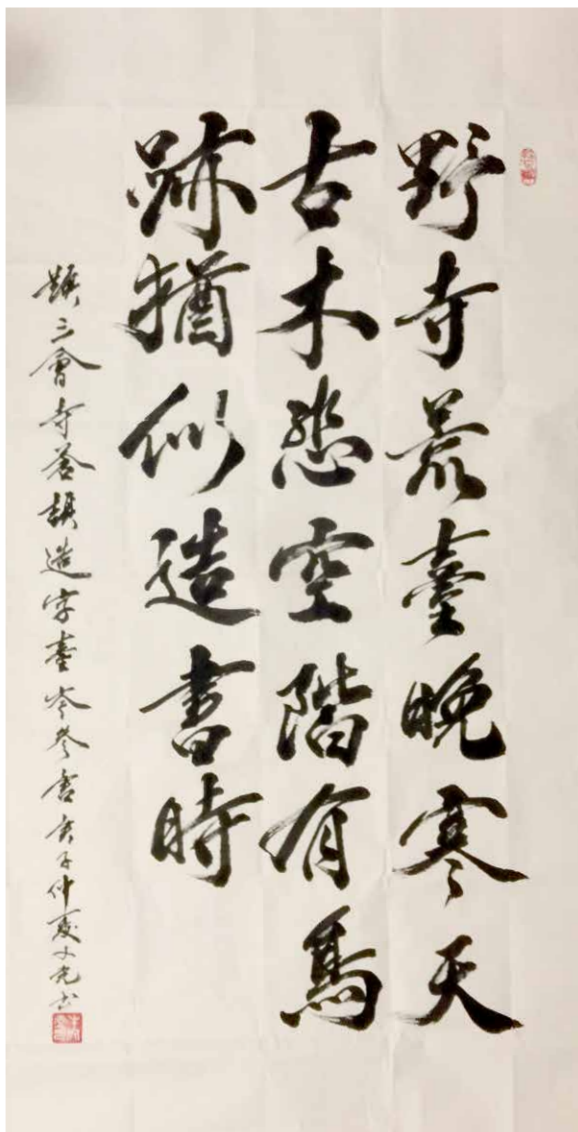 野寺荒臺晚寒天
古木悲空階有鳥
跡猶似造書時
題三會寺蒼頡造字臺岑參庚子仲夏